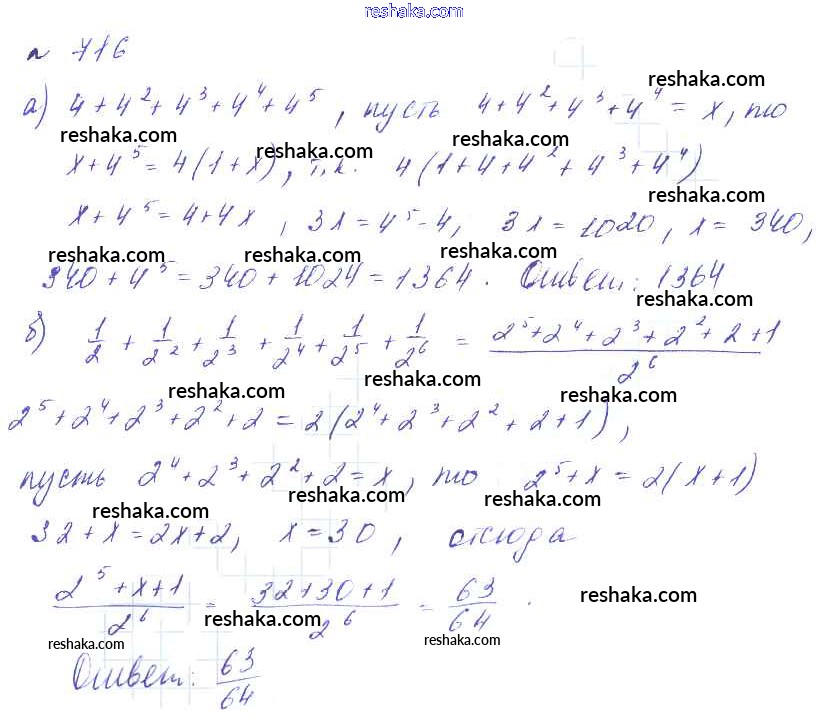 reshaka.com
№ 716
reshaka.com
а) 4+4²+4³+4⁴+4⁵, пусть 4+4²+4³+4⁴=x, то
reshaka.com reshaka.com reshaka.com
x+4⁵=4(1+x), т.к. 4(1+4+4²+4³+4⁴)
reshaka.com
x+4⁵=4+4x, 3x=4⁵-4, 3x=1020, x=340,
reshaka.com reshaka.com reshaka.com
340+4⁵=340+1024=1364. Ответ: 1364
reshaka.com
б) 1/2 + 1/2² + 1/2³ + 1/2⁴ + 1/2⁵ + 1/2⁶ = (2⁵+2⁴+2³+2²+2+1)/2⁶
reshaka.com reshaka.com
2⁵+2⁴+2³+2²+2=2(2⁴+2³+2²+2+1),
reshaka.com
пусть 2⁴+2³+2²+2=x, то 2⁵+x=2(x+1)
reshaka.com reshaka.com
reshaka.com
32+x=2x+2, x=30, отсюда
(2⁵+x+1)/2⁶ = (32+30+1)/2⁶ = 63/64.
reshaka.com
reshaka.com
reshaka.com reshaka.com
Ответ: 63/64